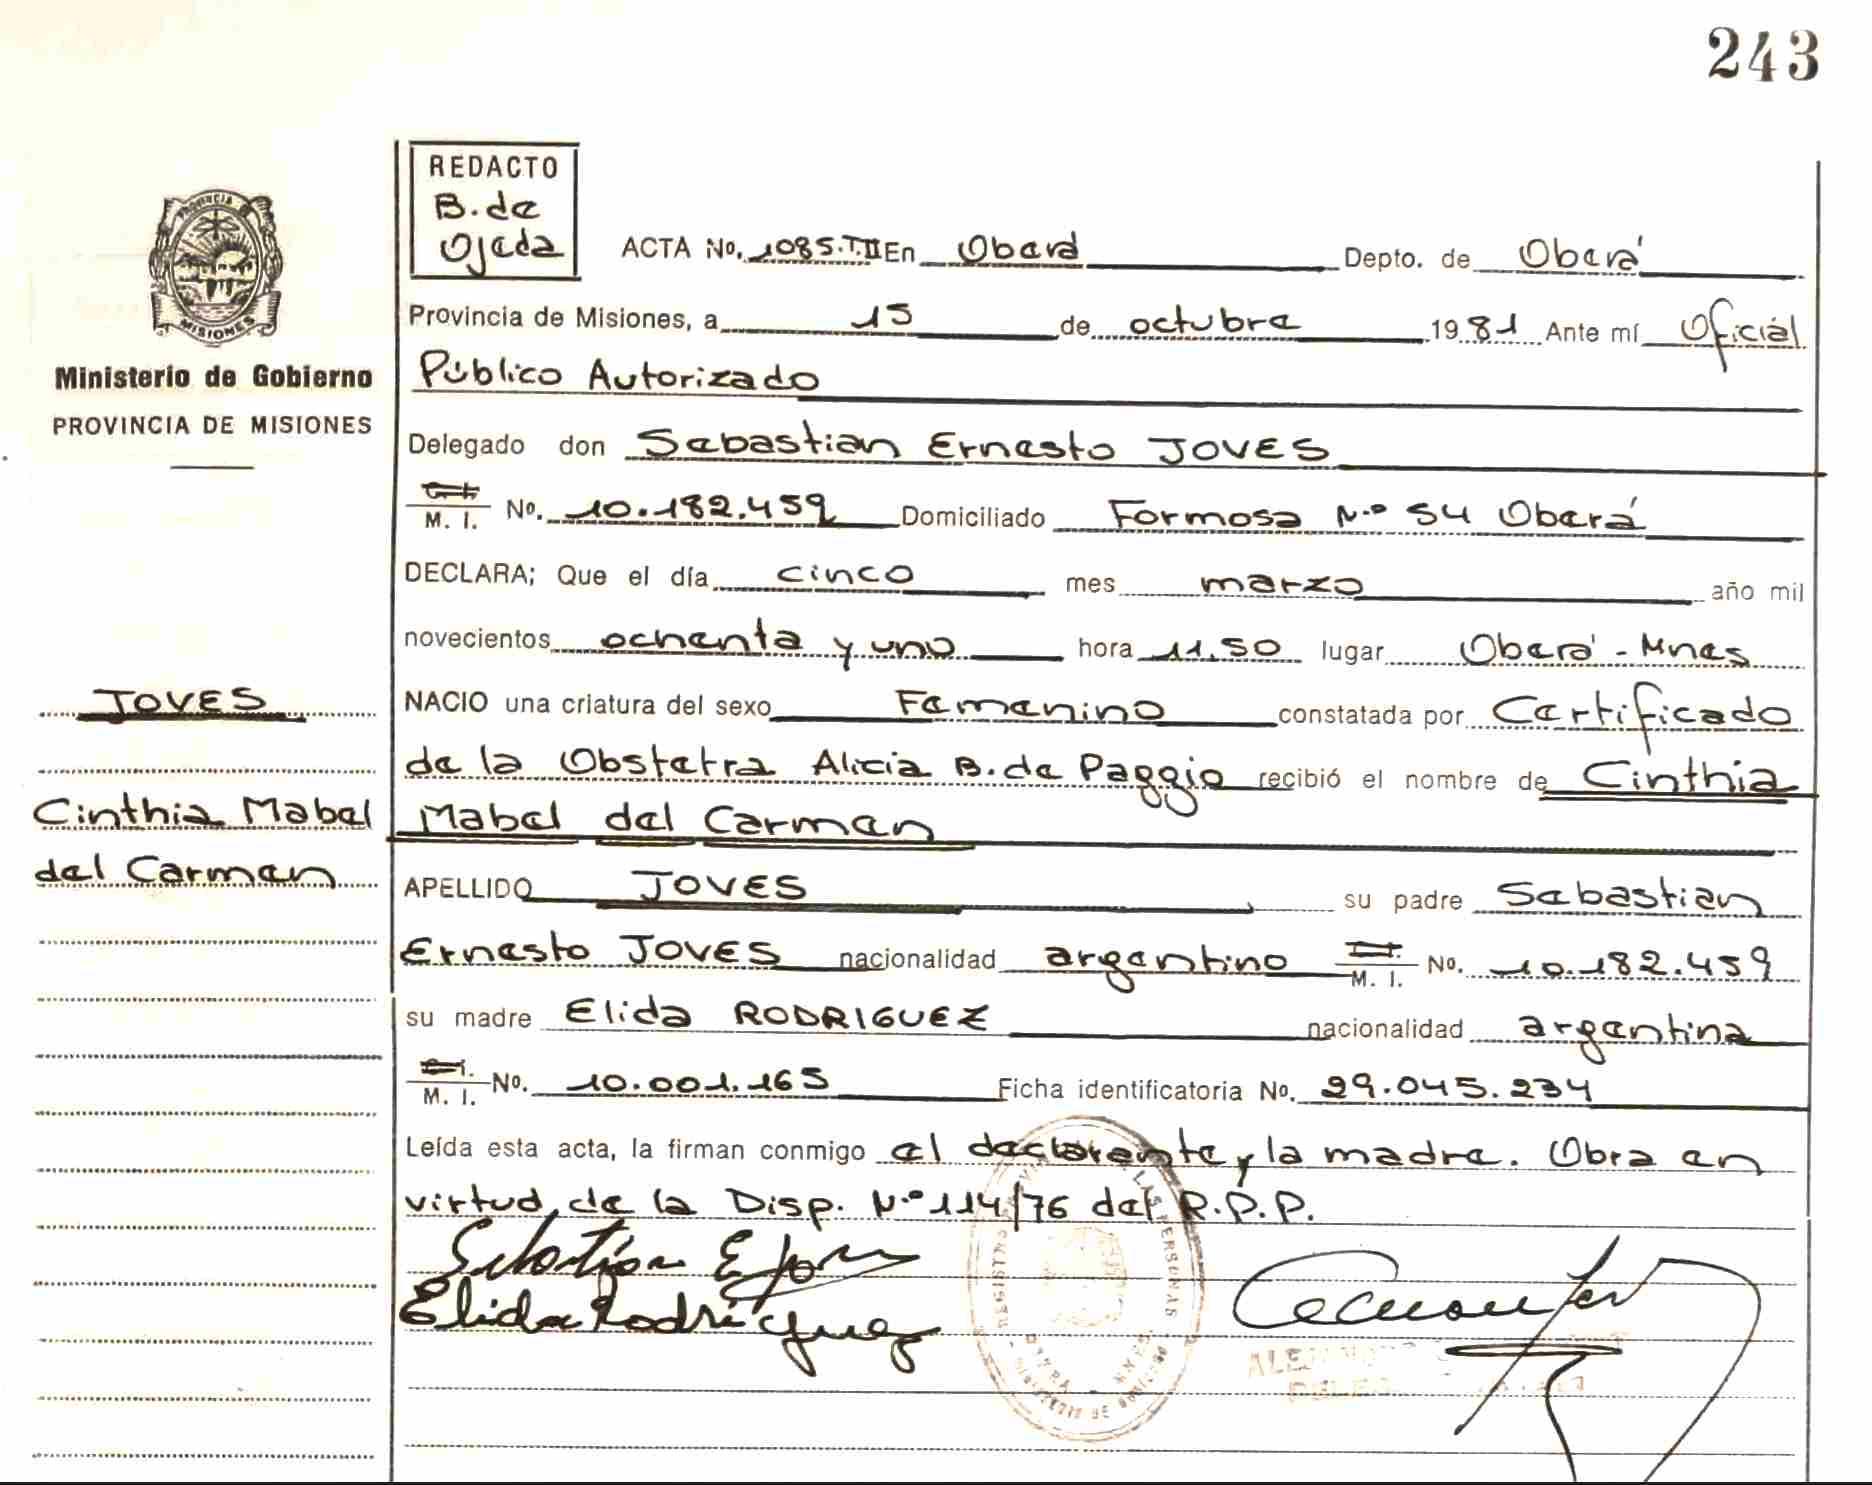 243
REDACTO
B. de
Ojeda
ACTA No. 1085.T.II En Oberá Depto. de Oberá
PROVINCIA DE
MISIONES
Ministerio de Gobierno
PROVINCIA DE MISIONES
Provincia de Misiones, a 15 de octubre 1981 Ante mí Oficial
Público Autorizado
Delegado don Sebastian Ernesto JOVES
M. I. No. 10.182.459 Domiciliado Formosa N.º 54 Oberá
DECLARA; Que el día cinco mes marzo año mil
novecientos ochenta y uno hora 11,50 lugar Oberá - Mnes
JOVES
NACIO una criatura del sexo Femenino constatada por Certificado
de la Obstetra Alicia B. de Paggio recibió el nombre de Cinthia
Cinthia Mabel
del Carmen
Mabel del Carmen
APELLIDO JOVES su padre Sebastian
Ernesto JOVES nacionalidad argentino M. I. No. 10.182.459
su madre Elida RODRIGUEZ nacionalidad argentina
M. I. No. 10.001.165 Ficha identificatoria No. 29.045.234
Leída esta acta, la firman conmigo el declarante y la madre. Obra en
virtud de la Disp. N.º 114/76 del R.P.P.
Sebastián E Joves
Elida Rodríguez
REGISTRO LAS PERSONAS